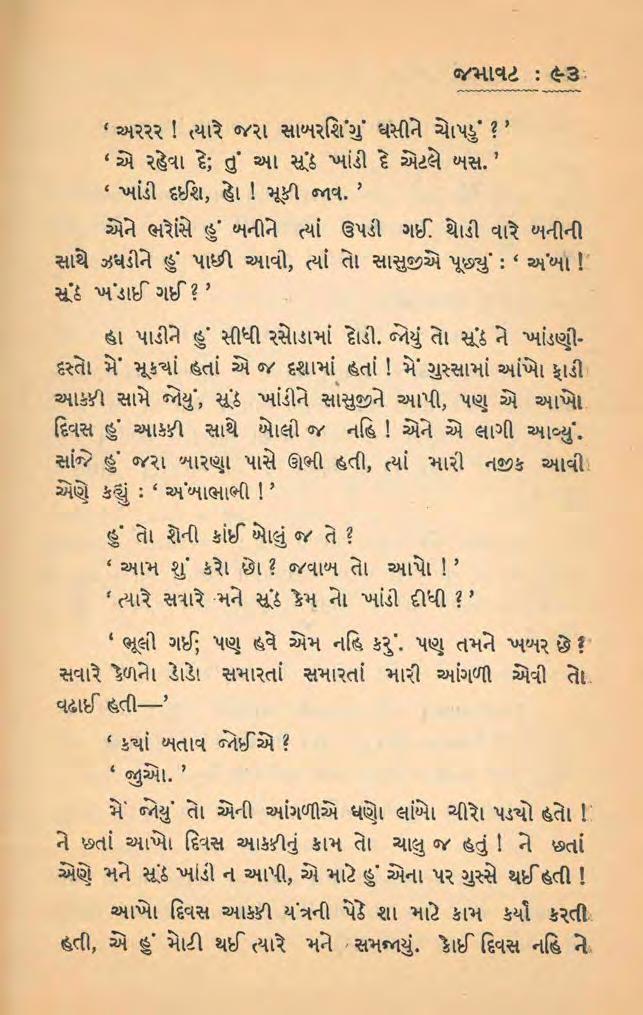 જમાવટ : ૯૩
‘ અરરર ! ત્યારે જરા સાબરશિંગું ઘસીને ચોપડું ? ’
‘ એ રહેવા દે; તું આ સૂંઠ ખાંડી દે એટલે બસ. ’
‘ ખાંડી દઈશ, હો ! મૂકી જાવ. ’
એને ભરોંસે હું બનીને ત્યાં ઉપડી ગઈ. થોડી વારે બનીની
સાથે ઝઘડીને હું પાછી આવી, ત્યાં તો સાસુજીએ પૂછ્યું : ‘ અંબા !
સૂંઠ ખંડાઈ ગઈ ? ’
હા પાડીને હું સીધી રસોડામાં દોડી. જોયું તો સૂંઠ ને ખાંડણી-
દસ્તો મેં મૂક્યાં હતાં એ જ દશામાં હતાં ! મેં ગુસ્સામાં આંખો ફાડી
આકકી સામે જોયું, સૂંઠ ખાંડીને સાસુજીને આપી, પણ એ આખો
દિવસ હું આકકી સાથે બોલી જ નહિ ! એને એ લાગી આવ્યું.
સાંજે હું જરા બારણા પાસે ઊભી હતી, ત્યાં મારી નજીક આવી
એણે કહ્યું : ‘ અંબાભાભી ! ’
હું તો શેની કાંઈ બોલું જ તે ?
‘ આમ શું કરો છો ? જવાબ તો આપો ! ’
‘ ત્યારે સવારે મને સૂંઠ કેમ નો ખાંડી દીધી ? ’
‘ ભૂલી ગઈ; પણ હવે એમ નહિ કરું. પણ તમને ખબર છે ?
સવારે કેળનો ડોડો સમારતાં સમારતાં મારી આંગળી એવી તો
વઢાઈ હતી—’
‘ ક્યાં બતાવ જોઈએ ?
‘ જુઓ. ’
મેં જોયું તો એની આંગળીએ ઘણો લાંબો ચીરો પડ્યો હતો !
ને છતાં આખો દિવસ આકકીનું કામ તો ચાલુ જ હતું ! ને છતાં
એણે મને સૂંઠ ખાંડી ન આપી, એ માટે હું એના પર ગુસ્સે થઈ હતી !
આખો દિવસ આકકી યંત્રની પેઠે શા માટે કામ કર્યા કરતી
હતી, એ હું મોટી થઈ ત્યારે મને સમજાયું. કોઈ દિવસ નહિ ને